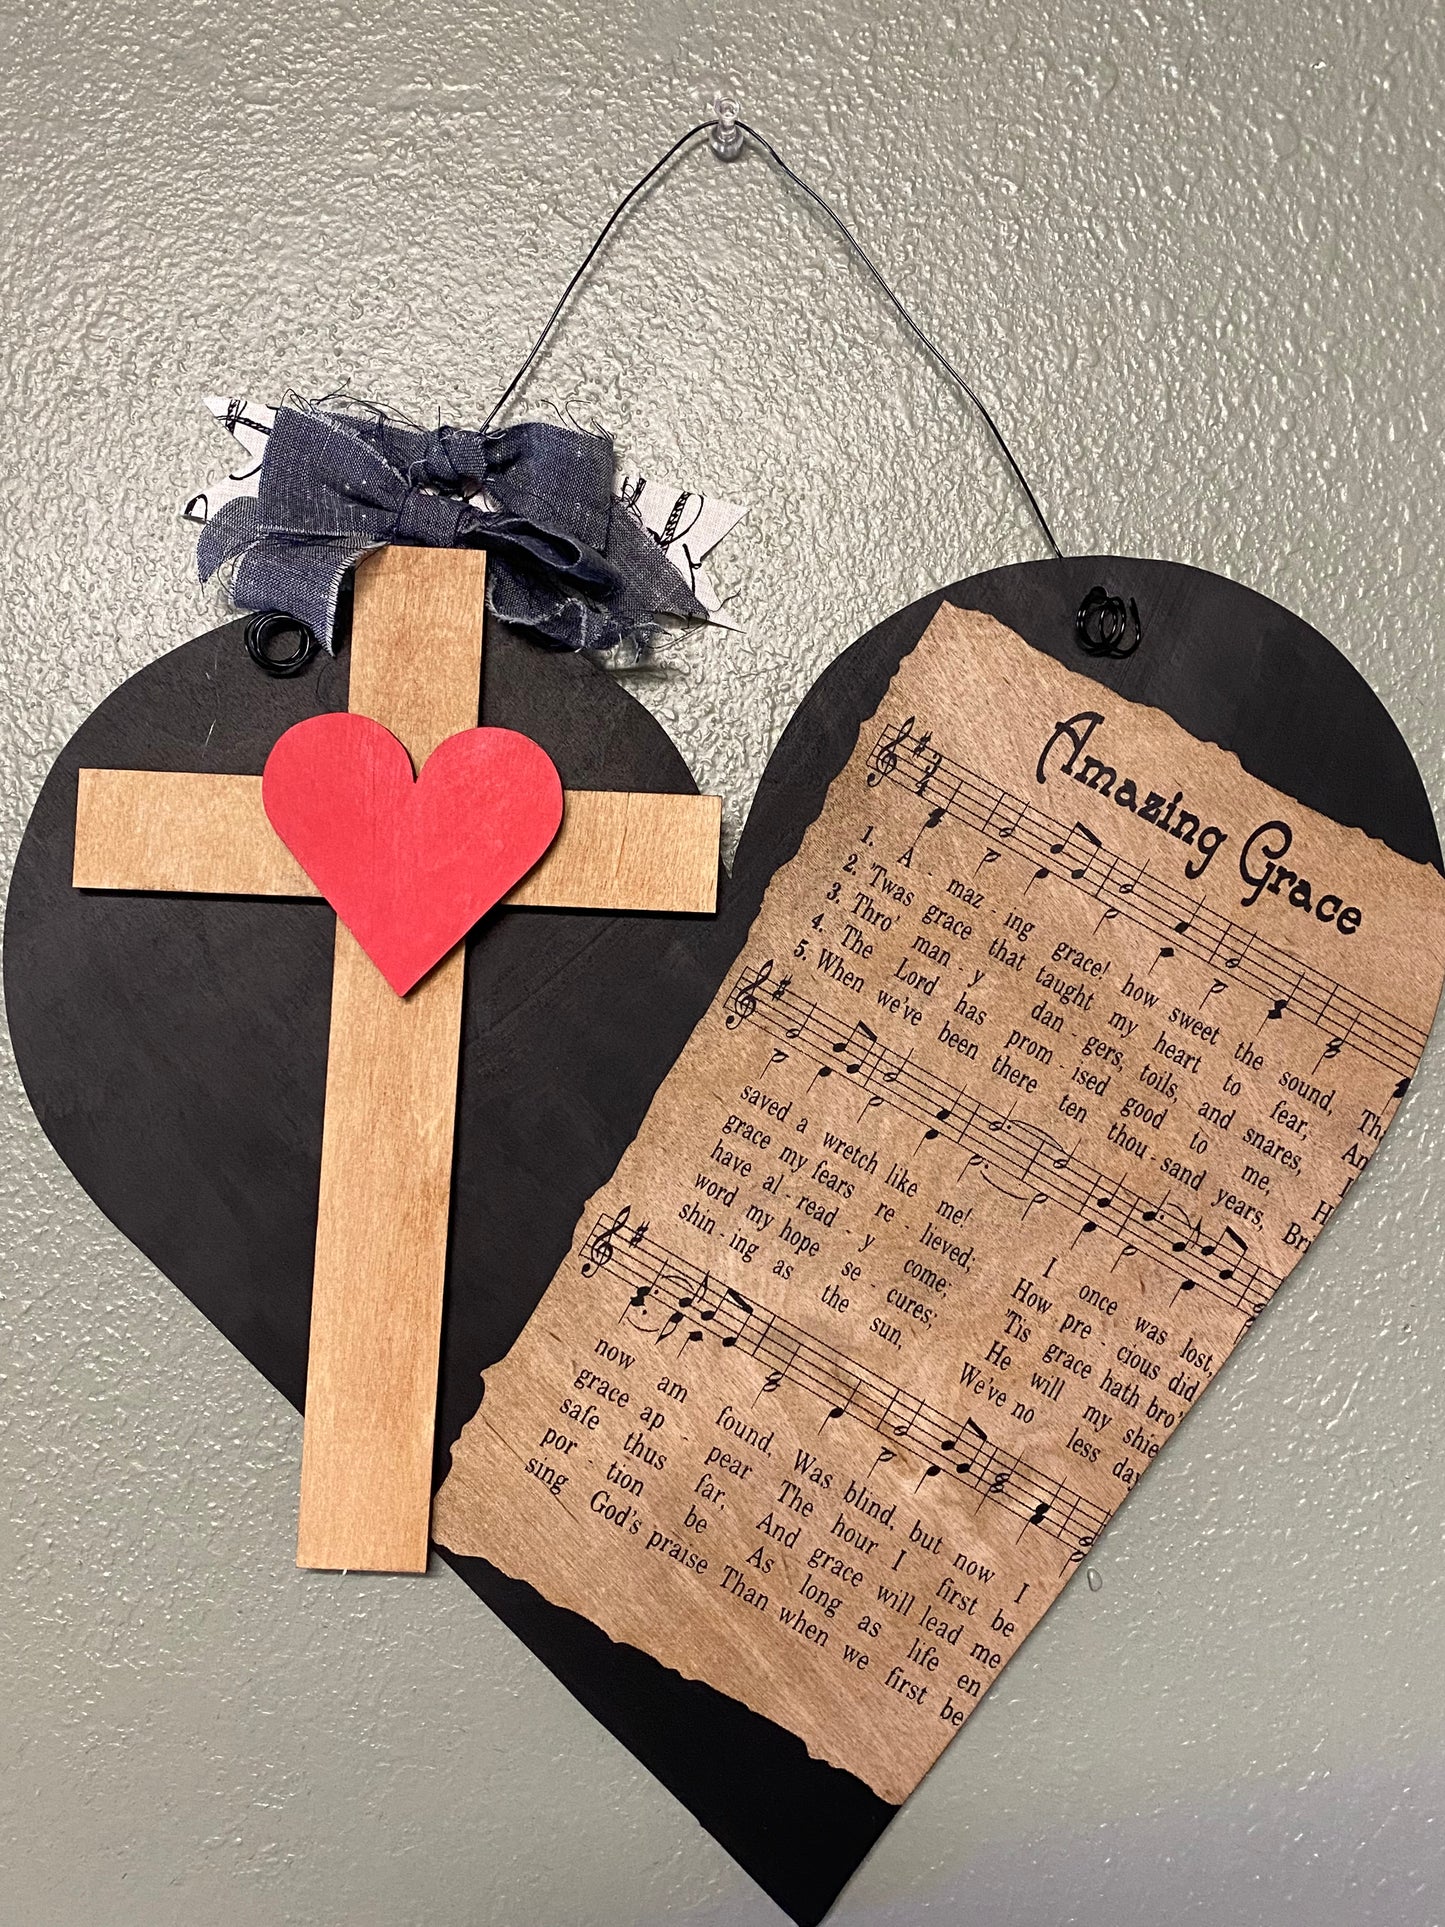 Amazing Grace
1. A - maz - ing grace! how sweet the sound, Th
2. 'Twas grace that taught my heart to fear, An
3. Thro' man - y dan - gers, toils, and snares, I
4. The Lord has prom - ised good to me, H
5. When we've been there ten thou - sand years, Bri
saved a wretch like me! I once was lost,
grace my fears re - lieved; How pre - cious did
have al - read - y come; 'Tis grace hath bro'
word my hope se - cures; He will my shie
shin - ing as the sun, We've no less day
now am found, Was blind, but now I
grace ap - pear The hour I first be
safe thus far, And grace will lead me
por - tion be As long as life en
sing God's praise Than when we first be